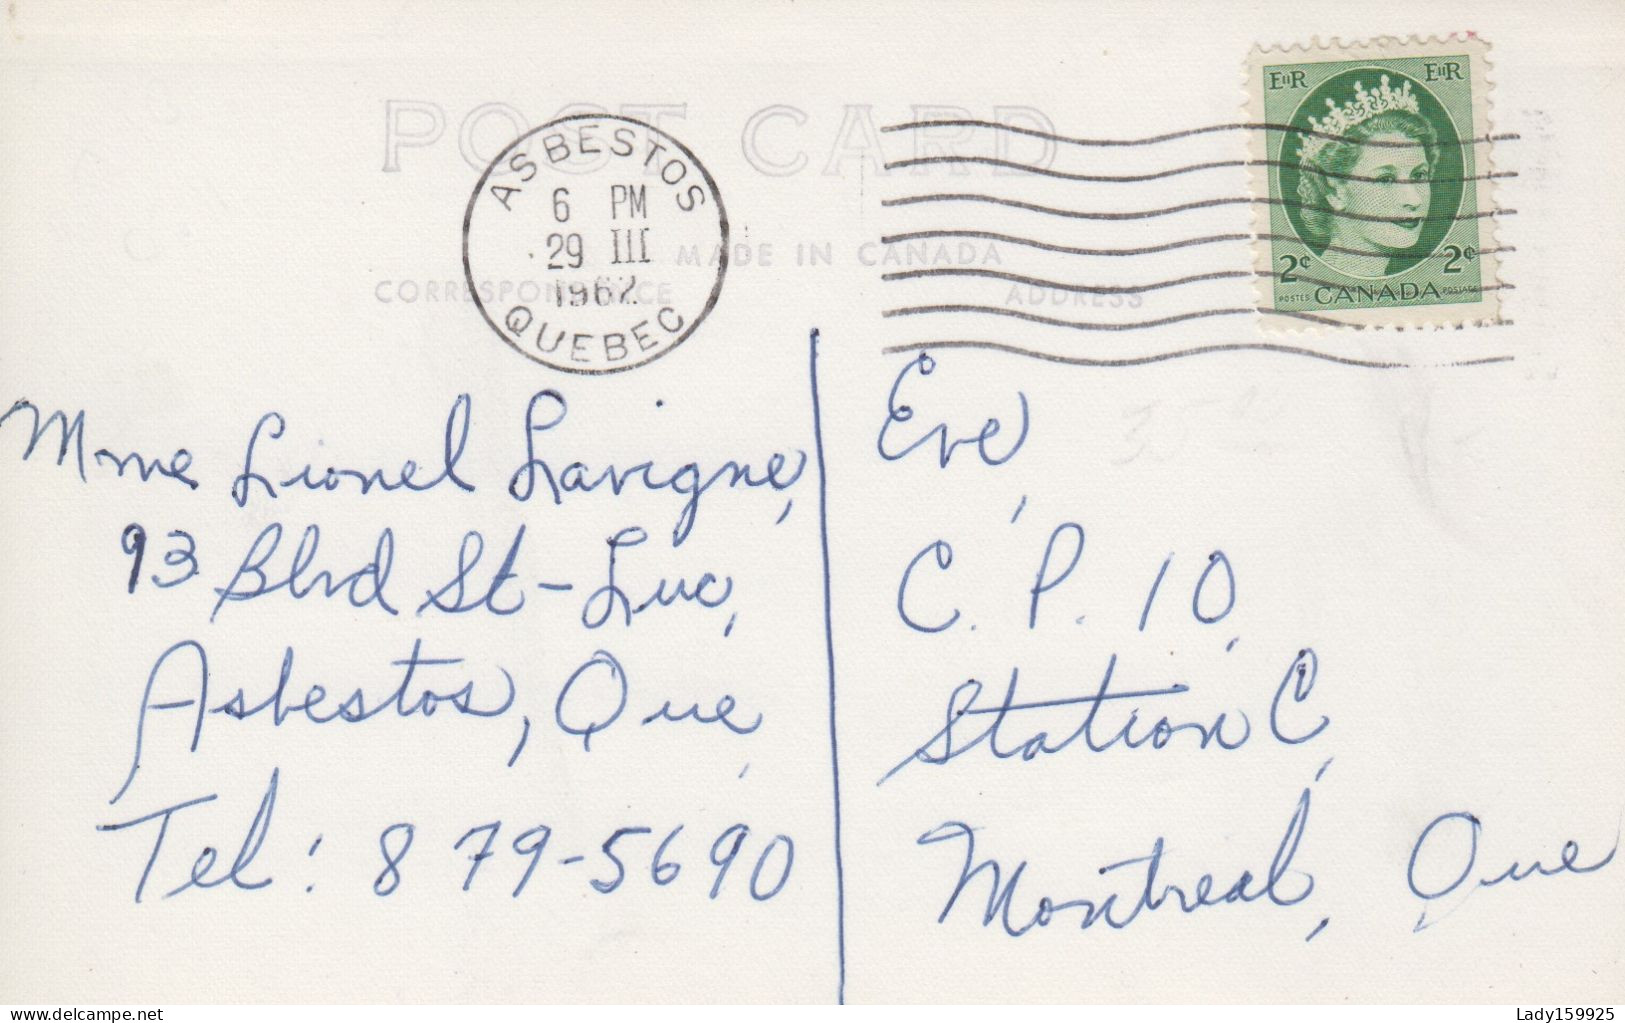 POST CARD
ASBESTOS
6 PM
29 III
1962
QUEBEC
MADE IN CANADA
CORRESPONDENCE
ADDRESS
EIIR EIIR
2¢ 2¢
POSTES CANADA POSTAGE
Mme Lionel Lavigne,
93 Blvd St-Luc,
Asbestos, Que,
Tel: 879-5690
Eve,
C. P. 10,
Station C,
Montreal, Que
delcampe.net
Lady159925